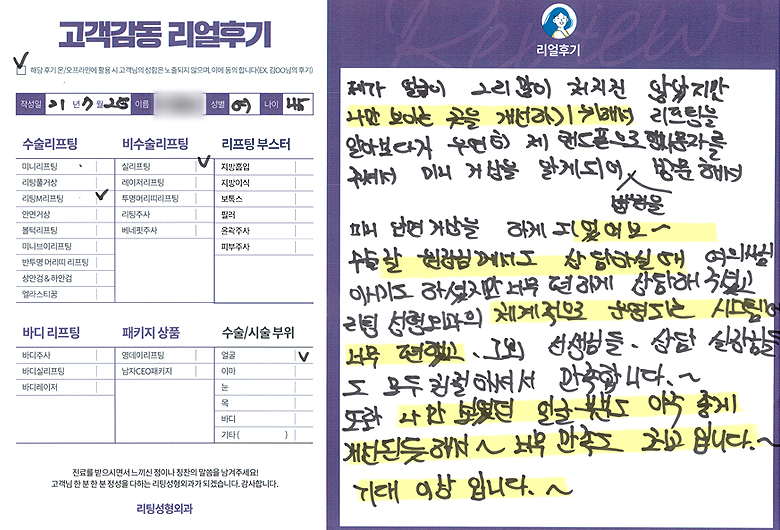 고객감동 리얼후기
해당 후기 온/오프라인에 활용 시 고객의 성함은 노출되지 않으며, 이에 동의 합니다(EX. 김OO님의 후기)
작성일 21년 7월 28 이름 성별 여 나이
수술리프팅
미니리프팅
리팅풀거상
리팅M리프팅
안면거상
볼턱리프팅
미니브이리프팅
반투명 머리띠 리프팅
상안검 & 하안검
엘라스티꿈
비수술리프팅
실리프팅
레이저리프팅
투명머리띠리프팅
리팅주사
베네핏주사
리프팅 부스터
지방흡입
지방이식
보톡스
필러
윤곽주사
피부주사
바디 리프팅
바디주사
바디실리프팅
바디레이저
패키지 상품
영데이리프팅
남자CEO패키지
수술/시술 부위
얼굴
이마
눈
목
바디
기타 ( )
진료를 받으시면서 느끼신 점이나 칭찬의 말씀을 남겨주세요!
고객님 한 분 한 분 정성을 다하는 리팅성형외과가 되겠습니다. 감사합니다.
리팅성형외과
Review
리얼후기
제가 얼굴이 그리 많이 처지진 않았지만
나만 보이는 곳을 개선하기 위해서 리프팅을
알아보다가 우연히 제 핸드폰으로 문자를
주셔서 미니 거상을 알게되어 방문해서
병원을
미니 안면거상을 하게 되었어요~
수술할 원장님께서도 상담하실 때 여의쌤
이시기도 하셨지만 너무 편하게 상담해 주셨고
리팅 성형외과의 체계적으로 운영되는 시스템이
너무 편했고. 그외 선생님들. 상담 실장님들
도 모두 친절해서 만족합니다.~
또한 나만 보였던 얼굴 부분도 아주 좋게
개선된듯해서~ 너무 만족도 최고 입니다.~
기대 이상 입니다. ~